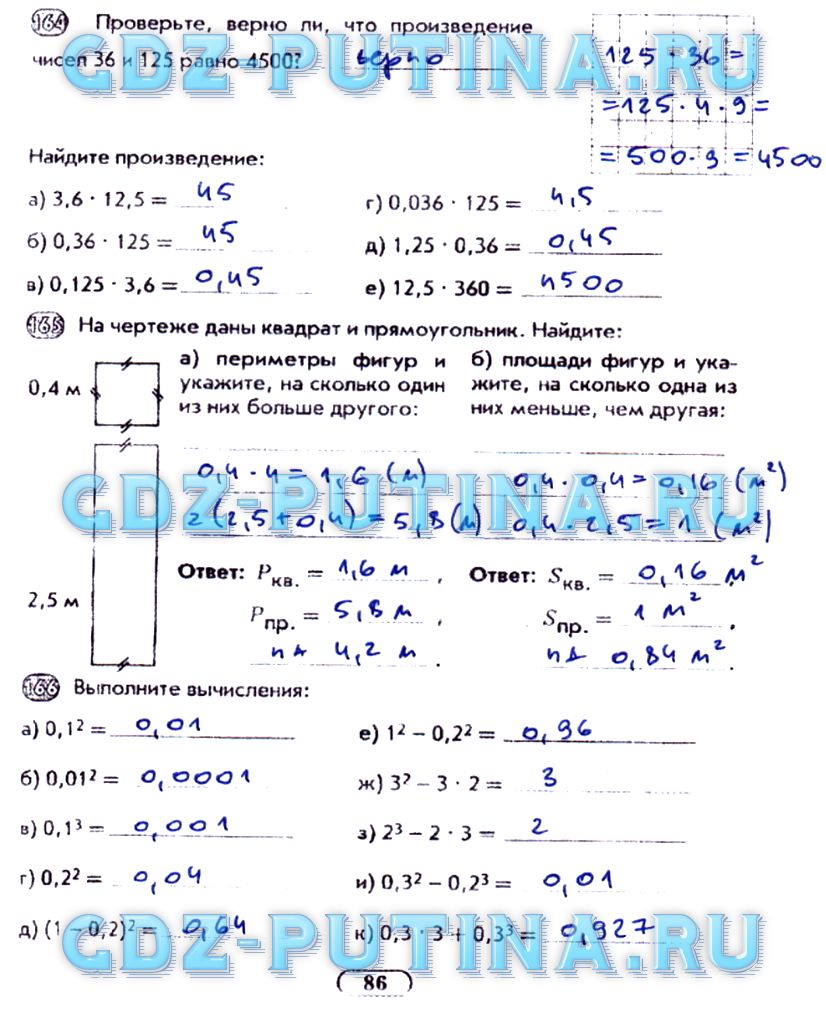 164 Проверьте, верно ли, что произведение
чисел 36 и 125 равно 4500? верно
125 · 36 =
= 125 · 4 · 9 =
= 500 · 9 = 4500
GDZ-PUTINA.RU
Найдите произведение:
а) 3,6 · 12,5 = 45
г) 0,036 · 125 = 4,5
б) 0,36 · 125 = 45
д) 1,25 · 0,36 = 0,45
в) 0,125 · 3,6 = 0,45
е) 12,5 · 360 = 4500
165 На чертеже даны квадрат и прямоугольник. Найдите:
0,4 м
2,5 м
а) периметры фигур и
укажите, на сколько один
из них больше другого:
0,4 · 4 = 1,6 (м)
2 (2,5 + 0,4) = 5,8 (м)
Ответ: Pкв. = 1,6 м ,
Pпр. = 5,8 м ,
на 4,2 м .
б) площади фигур и ука-
жите, на сколько одна из
них меньше, чем другая:
0,4 · 0,4 = 0,16 (м²)
0,4 · 2,5 = 1 (м²)
Ответ: Sкв. = 0,16 м² ,
Sпр. = 1 м² ,
на 0,84 м² .
GDZ-PUTINA.RU
166 Выполните вычисления:
а) 0,1² = 0,01
е) 1² – 0,2² = 0,96
б) 0,01² = 0,0001
ж) 3² – 3 · 2 = 3
в) 0,1³ = 0,001
з) 2³ – 2 · 3 = 2
г) 0,2² = 0,04
и) 0,3² – 0,2³ = 0,01
д) (1 – 0,2)² = 0,64
к) 0,3 · 3 + 0,3³ = 0,927
GDZ-PUTINA.RU
86